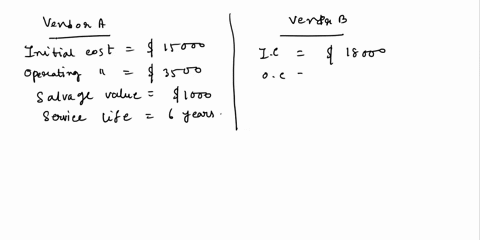 Vendor A
Initial cost = $ 15000
Operating " = $ 3500
Salvage value = $1000
Service life = 6 years.
Vendor B
I.C = $ 18000
O.C =